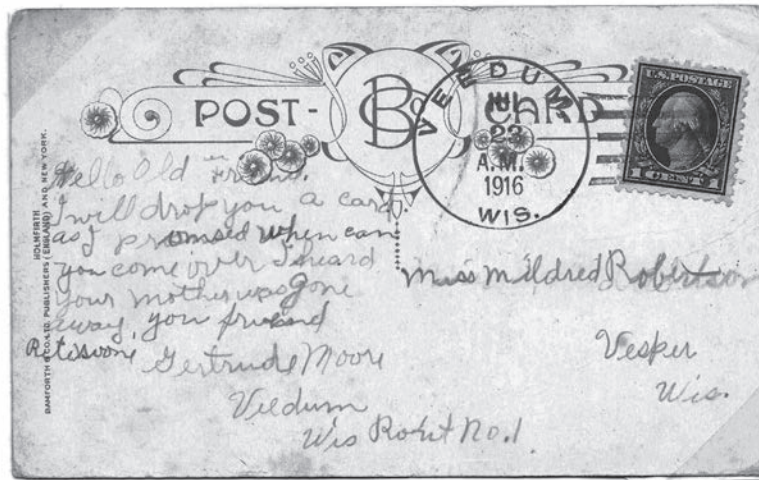 POST-CARD
BCo
VEEDUM
JUL
23
A.M.
1916
WIS.
U.S.POSTAGE
1 CENT 1
HOLMFIRTH
BAMFORTH & CO. LTD. PUBLISHERS (ENGLAND) AND NEW YORK.
Hello Old Friend.
I will drop you a card
as I promised when can
you come over I heard
your mother was gone
away, you friend
Gertrude Moore
Veedum
Wis Rout No.1
Miss Mildred Robertson
Vesper
Wis.